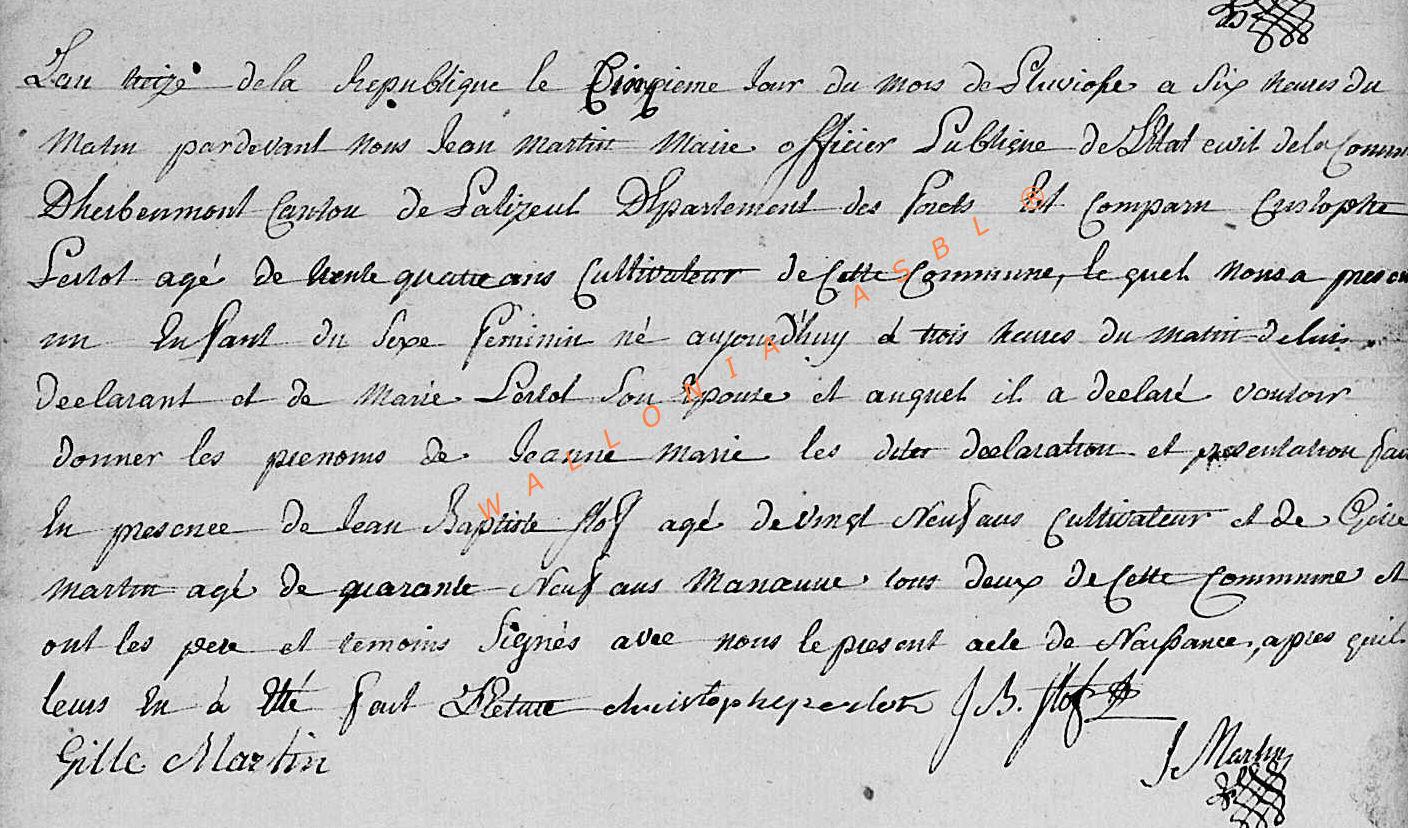 L'an treize de la Republique le Cinqieme Jour du mois de Pluviose a Six heures du
Matin pardevant Nous Jean Martin Maire officier Publique de L'Etat civil de la Comm
Dherbeumont Canton de Palizeul Département des forets Est Comparu Cristophe
Perlot agé de trente quatre ans Cultivateur de Cette Commune, le quel Nous a presen
un Enfant du Sexe feminin né aujourd'huy à trois heures du matin de lui
declarant et de Marie Perlot Son Epouse et auquel il a declaré vouloir
donner les prenoms de Jeanne Marie les dites declaration et presentation fai
En presence de Jean Baptiste agé de vingt Neuf ans Cultivateur et de Gille
Martin agé de quarante Neuf ans Manœuvre tous deux de Cette Commune et
ont les pere et temoins Signés avec nous le present acte de Naissance, apres quil
leurs En à Eté fait Lecture christophe perlot J B.
Gille Martin
J Martin
WALLONIA ASBL ®